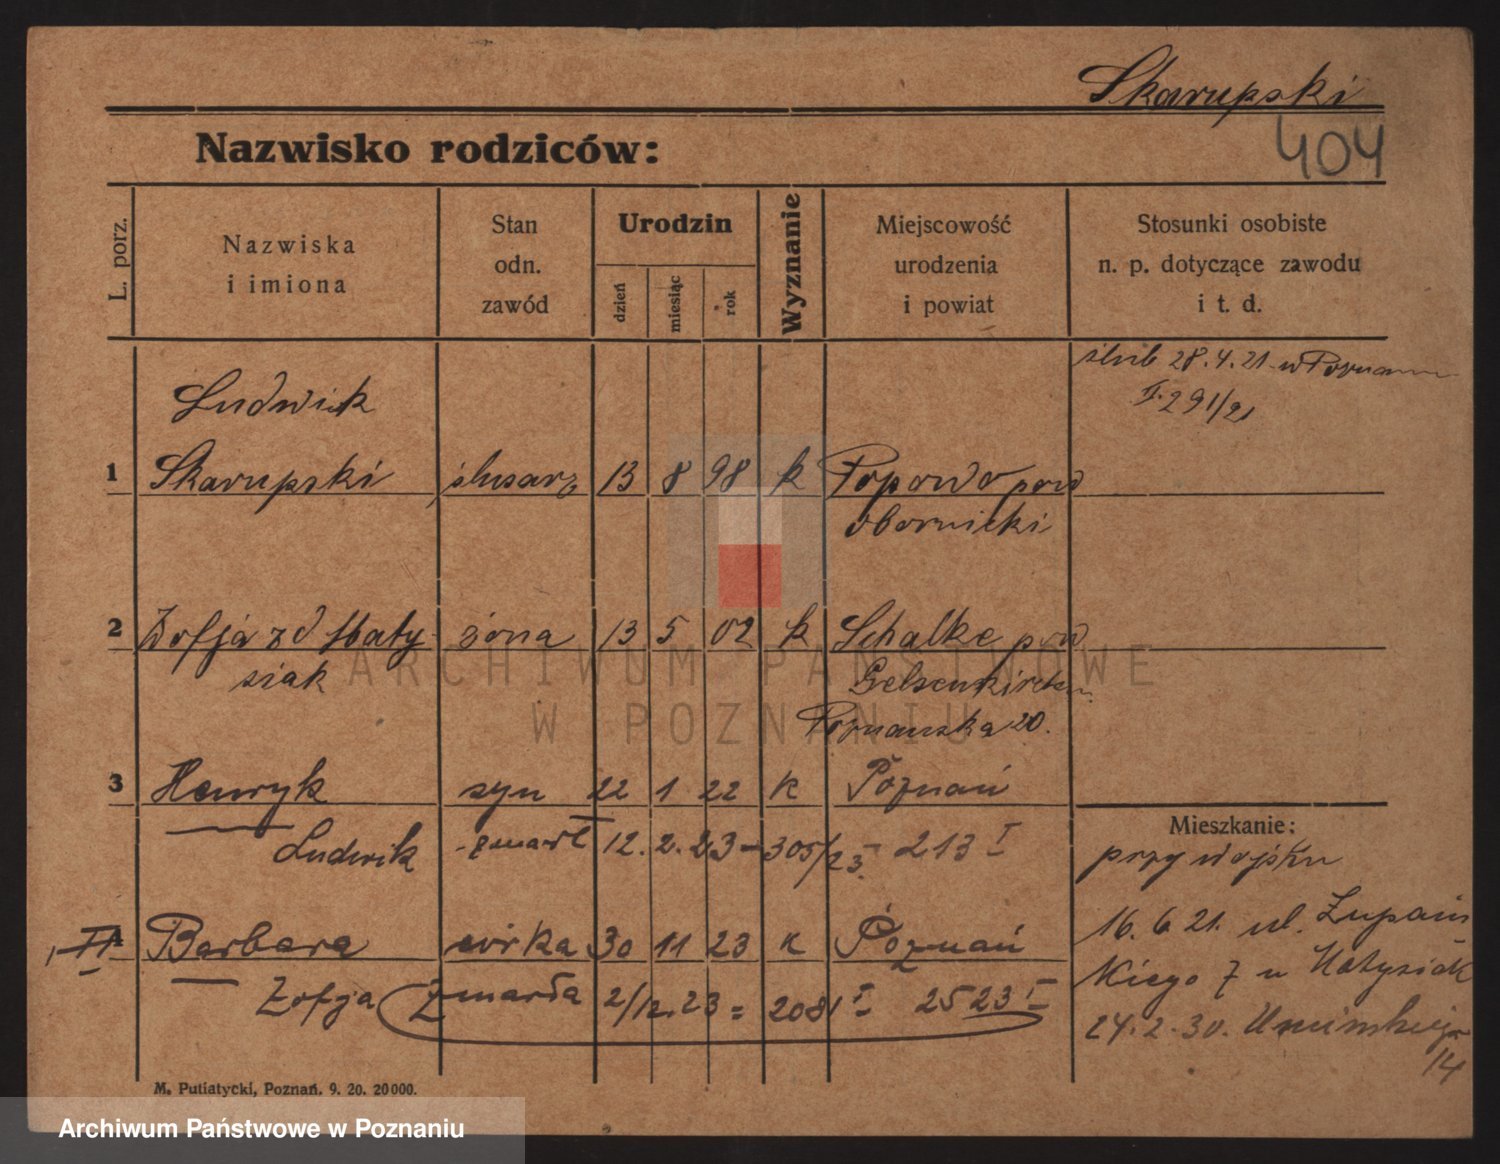 Skarupski
404
Nazwisko rodziców:
L. porz.
Nazwiska
i imiona
Stan
odn.
zawód
Urodzin
dzień
miesiąc
rok
Wyznanie
Miejscowość
urodzenia
i powiat
Stosunki osobiste
n. p. dotyczące zawodu
i t. d.
ślub 28.4.21 w Poznaniu
291/21
Ludwik
1 Skarupski ślusarz 13 8 98 k Popowo pow
obornicki
2 Zofja zd Maty- żona 13 5 02 k Schalke pow
siak Gelsenkirchen
Poznańska 20.
3 Henryk syn 22 1 22 k Poznań
Ludwik zmarł 12.2.23 - 305/23 - 213 I
4 Barbara córka 30 11 23 k Poznań
Zofja zmarła 2/12.23 = 2081 I 2523 I
Mieszkanie:
przy wojsku
16.6.21. ul. Żupań
skiego 7 u Matysiak
24.2.30. Umińskiego
14
M. Putiatycki, Poznań. 9. 20. 20000.
ARCHIWUM PAŃSTWOWE
W POZNANIU
Archiwum Państwowe w Poznaniu